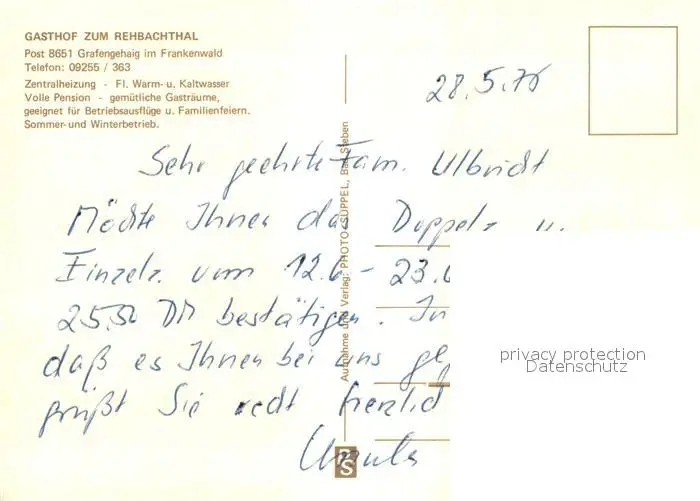 GASTHOF ZUM REHBACHTHAL
Post 8651 Grafengehaig im Frankenwald
Telefon: 09255 / 363
Zentralheizung - Fl. Warm- u. Kaltwasser
Volle Pension - gemütliche Gasträume,
geeignet für Betriebsausflüge u. Familienfeiern.
Sommer- und Winterbetrieb.
28.5.76
Sehr geehrte Fam. Ulbricht
Möchte Ihnen das Doppelz u.
Einzelz. vom 12.6 - 23.6
25,50 DM bestätigen. In
daß es Ihnen bei uns
grüßt Sie recht herzlich
Ursula
Aufnahme und Verlag: PHOTO-SÜPPEL, Bad Steben
PS
privacy protection
Datenschutz